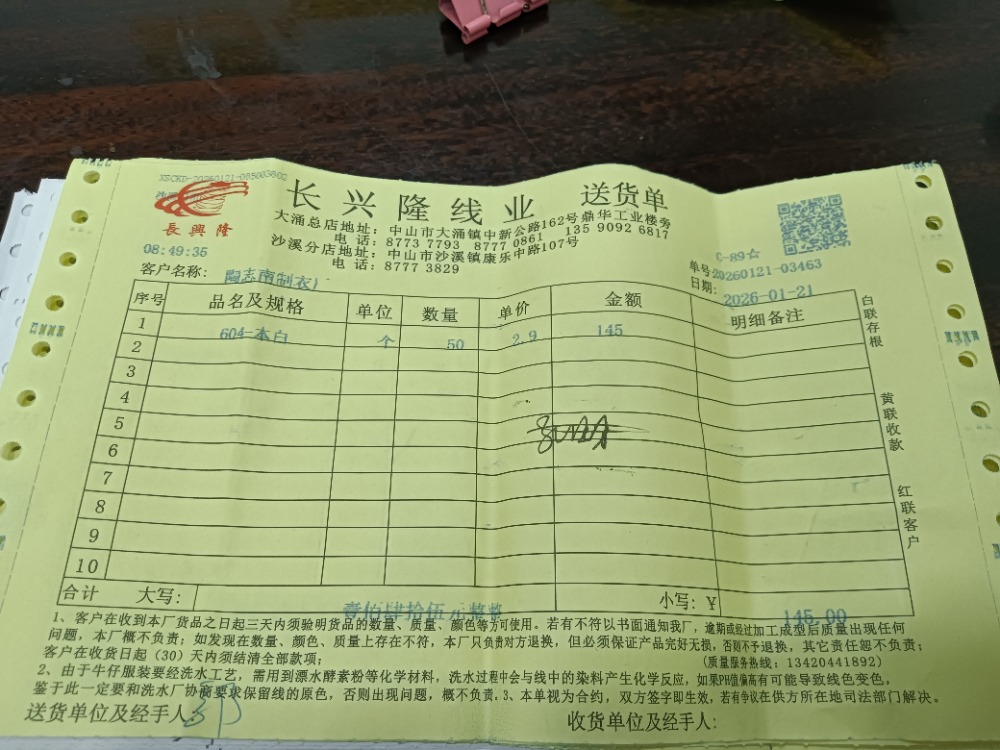 XSCKD-20260121-085003602
長興隆
长兴隆线业 送货单
大涌总店地址: 中山市大涌镇中新公路162号鼎华工业楼旁
电话: 8773 7793 8777 0861 135 9092 6817
沙溪分店地址: 中山市沙溪镇康乐中路107号
电话: 8777 3829
08:49:35
C-89☆
单号:20260121-03463
客户名称: 陶志南制衣厂
日期: 2026-01-21
序号 品名及规格 单位 数量 单价 金额 明细备注
1 604-本白 个 50 2.9 145
2
3
4
5
6
7
8
9
10
合计 大写: 壹佰肆拾伍元整 小写: ¥ 145.00
白联存根
黄联收款
红联客户
1、客户在收到本厂货品之日起三天内须验明货品的数量、质量、颜色等方可使用。若有不符以书面通知我厂,逾期或经过加工成型后质量出现任何
问题,本厂概不负责;如发现在数量、颜色、质量上存在不符,本厂只负责对方退换,但必须保证产品完好无损,否则不予退换,其它责任恕不负责;
客户在收货日起(30)天内须结清全部款项;
(质量服务热线: 13420441892)
2、由于牛仔服装要经洗水工艺,需用到漂水酵素粉等化学材料,洗水过程中会与线中的染料产生化学反应,如果PH值偏高有可能导致线色变色,
鉴于此一定要和洗水厂协商要求保留线的原色,否则出现问题,概不负责.3、本单视为合约,双方签字即生效,若有争议在供方所在地司法部门解决。
送货单位及经手人:
收货单位及经手人: